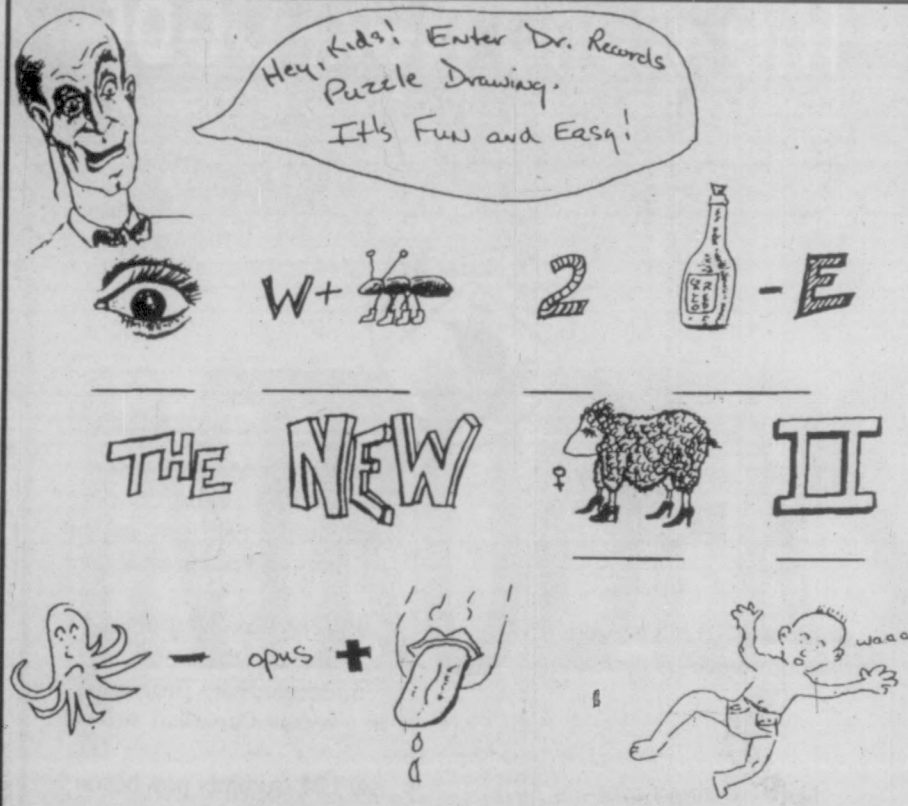 Hey, Kids! Enter Dr. Records
Puzzle Drawing.
It's Fun and Easy!
W+ 2 - E
THE NEW II
- opus +
waaa